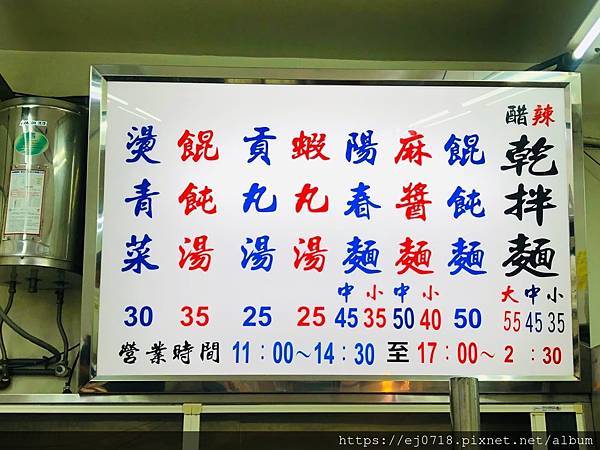 醋辣
乾拌麵
大中小
55 45 35
餛飩麵
50
麻醬麵
中小
50 40
陽春麵
中小
45 35
蝦丸湯
25
貢丸湯
25
餛飩湯
35
燙青菜
30
營業時間 11:00～14:30 至 17:00～2:30
https://ej0718.pixnet.net/album